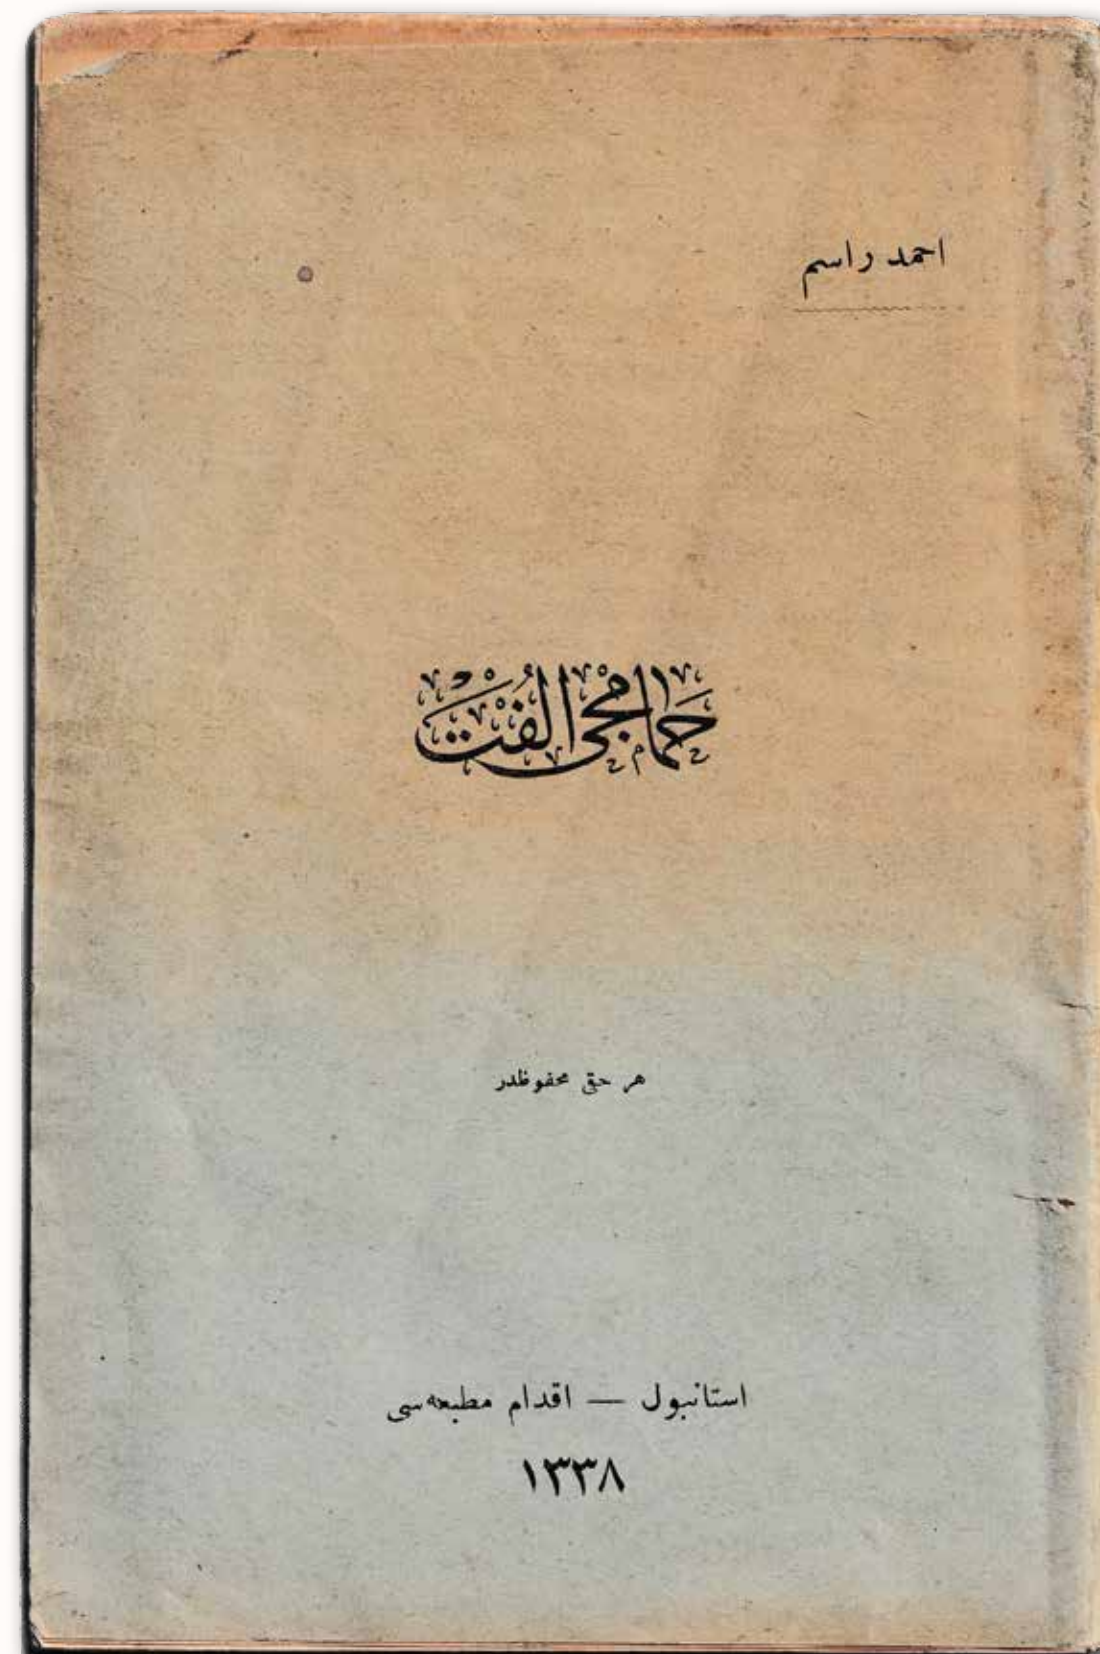 احمد راسم
حمامجی الفت
هر حقی محفوظدر
استانبول — اقدام مطبعه‌سی
۱۳۳۸